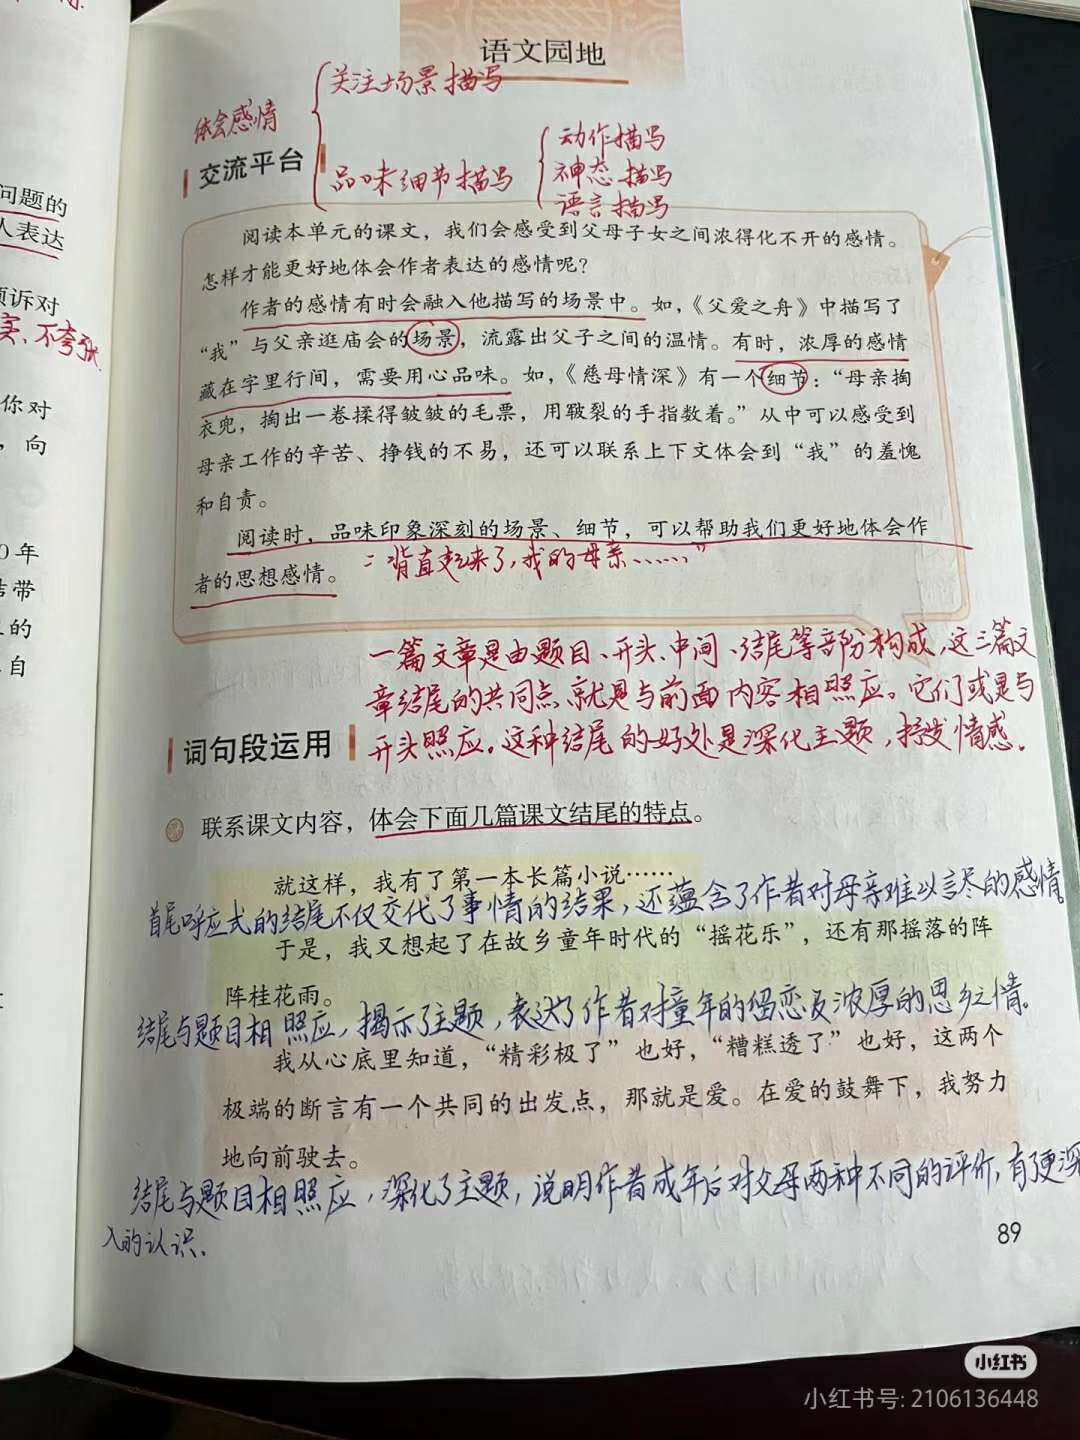 语文园地
体会感情
关注场景描写
品味细节描写
动作描写
神态描写
语言描写
交流平台
阅读本单元的课文，我们会感受到父母子女之间浓得化不开的感情。
怎样才能更好地体会作者表达的感情呢？
作者的感情有时会融入他描写的场景中。如，《父爱之舟》中描写了
“我”与父亲逛庙会的场景，流露出父子之间的温情。有时，浓厚的感情
藏在字里行间，需要用心品味。如，《慈母情深》有一个细节：“母亲掏
衣兜，掏出一卷揉得皱皱的毛票，用皲裂的手指数着。”从中可以感受到
母亲工作的辛苦、挣钱的不易，还可以联系上下文体会到“我”的羞愧
和自责。
阅读时，品味印象深刻的场景、细节，可以帮助我们更好地体会作
者的思想感情。
背直起来了，我的母亲……”
一篇文章是由题目、开头、中间、结尾等部份构成，这三篇文
章结尾的共同点就是与前面内容相照应。它们或是与
开头照应。这种结尾的好处是深化主题，抒发情感.
词句段运用
联系课文内容，体会下面几篇课文结尾的特点。
就这样，我有了第一本长篇小说……
首尾呼应式的结尾不仅交代了事情的结果，还蕴含了作者对母亲难以言尽的感情。
于是，我又想起了在故乡童年时代的“摇花乐”，还有那摇落的阵
阵桂花雨。
结尾与题目相照应，揭示了主题，表达了作者对童年的留恋及浓厚的思乡之情。
我从心底里知道，“精彩极了”也好，“糟糕透了”也好，这两个
极端的断言有一个共同的出发点，那就是爱。在爱的鼓舞下，我努力
地向前驶去。
结尾与题目相照应，深化了主题，说明作者成年后对父母两种不同的评价，有了更深
入的认识.
89
问题的
人表达
倾诉对
实、不夸张
你对
，向
0年
结带
的
自
小红书
小红书号: 2106136448